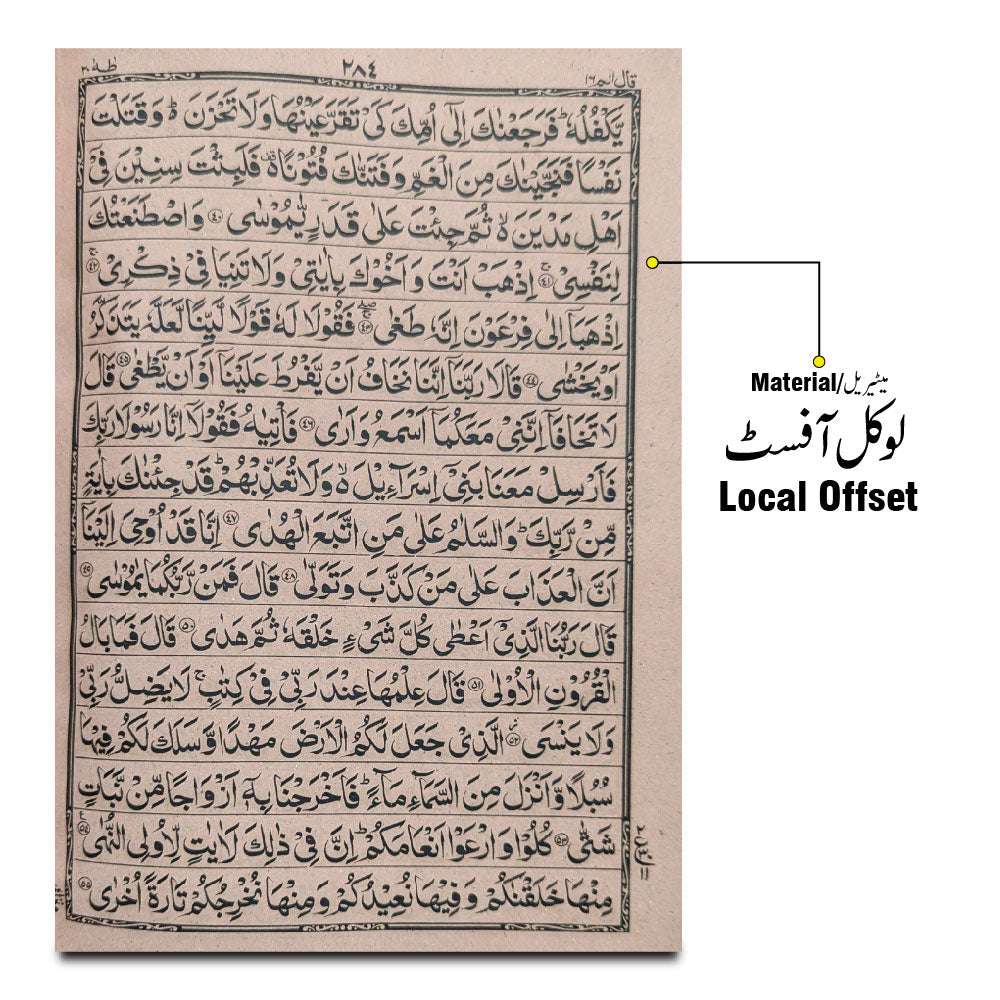 قال الم ١٦
٢٨٤
طٰهٰ ٢٠
يَّكْفُلُهٗ ؕ فَرَجَعْنٰكَ اِلٰۤى اُمِّكَ كَىْ تَقَرَّ عَيْنُهَا وَلَا تَحْزَنَ ؕ۬ وَقَتَلْتَ
نَفْسًا فَنَجَّيْنٰكَ مِنَ الْغَمِّ وَفَتَنّٰكَ فُتُوْنًا ۬۫ فَلَبِثْتَ سِنِيْنَ فِىْۤ
اَهْلِ مَدْيَنَ ۙ۬ ثُمَّ جِئْتَ عَلٰى قَدَرٍ يّٰمُوْسٰى ۝٤٠ وَاصْطَنَعْتُكَ
لِنَفْسِىْ ۚ۝٤١ اِذْهَبْ اَنْتَ وَ اَخُوْكَ بِاٰيٰتِىْ وَلَا تَنِيَا فِىْ ذِكْرِىْ ۚ۝٤٢
اِذْهَبَاۤ اِلٰى فِرْعَوْنَ اِنَّهٗ طَغٰى ۚۖ۝٤٣ فَقُوْلَا لَهٗ قَوْلًا لَّيِّنًا لَّعَلَّهٗ يَتَذَكَّرُ
اَوْ يَخْشٰى ۝٤٤ قَالَا رَبَّنَاۤ اِنَّنَا نَخَافُ اَنْ يَّفْرُطَ عَلَيْنَاۤ اَوْ اَنْ يَّطْغٰى ۝٤٥ قَالَ
لَا تَخَافَاۤ اِنَّنِىْ مَعَكُمَاۤ اَسْمَعُ وَاَرٰى ۝٤٦ فَاْتِيٰهُ فَقُوْلَاۤ اِنَّا رَسُوْلَا رَبِّكَ
فَاَرْسِلْ مَعَنَا بَنِىْۤ اِسْرَآءِيْلَ ۙ۬ وَلَا تُعَذِّبْهُمْ ؕ قَدْ جِئْنٰكَ بِاٰيَةٍ
مِّنْ رَّبِّكَ ؕ وَالسَّلٰمُ عَلٰى مَنِ اتَّبَعَ الْهُدٰى ۝٤٧ اِنَّا قَدْ اُوْحِىَ اِلَيْنَاۤ
اَنَّ الْعَذَابَ عَلٰى مَنْ كَذَّبَ وَتَوَلّٰى ۝٤٨ قَالَ فَمَنْ رَّبُّكُمَا يٰمُوْسٰى ۝٤٩
قَالَ رَبُّنَا الَّذِىْۤ اَعْطٰى كُلَّ شَىْءٍ خَلْقَهٗ ثُمَّ هَدٰى ۝٥٠ قَالَ فَمَا بَالُ
الْقُرُوْنِ الْاُوْلٰى ۝٥١ قَالَ عِلْمُهَا عِنْدَ رَبِّىْ فِىْ كِتٰبٍ ۚ لَا يَضِلُّ رَبِّىْ
وَلَا يَنْسَى ۝٥٢ الَّذِىْ جَعَلَ لَكُمُ الْاَرْضَ مَهْدًا وَّسَلَكَ لَكُمْ فِيْهَا
سُبُلًا وَّاَنْزَلَ مِنَ السَّمَآءِ مَآءً ؕ فَاَخْرَجْنَا بِهٖۤ اَزْوَاجًا مِّنْ نَّبَاتٍ
شَتّٰى ۝٥٣ كُلُوْا وَارْعَوْا اَنْعَامَكُمْ ؕ اِنَّ فِىْ ذٰلِكَ لَاٰيٰتٍ لِّاُولِى النُّهٰى ۝٥٤
مِنْهَا خَلَقْنٰكُمْ وَفِيْهَا نُعِيْدُكُمْ وَمِنْهَا نُخْرِجُكُمْ تَارَةً اُخْرٰى ۝٥٥
Material/میٹیریل
لوکل آفسٹ
Local Offset